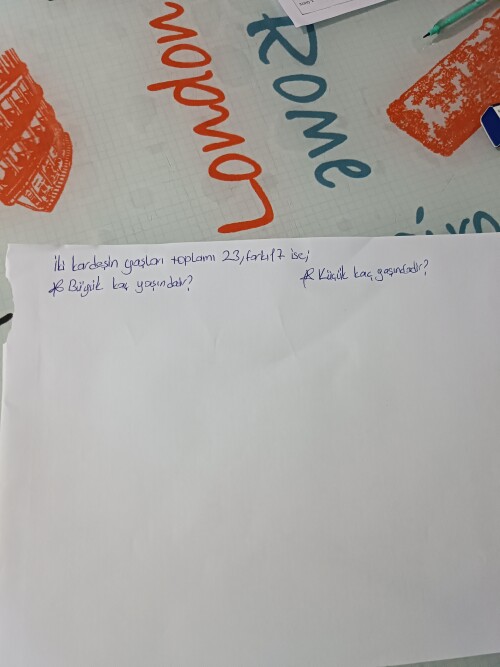 London
Rome
İki kardeşin yaşları toplamı 23, farkı 7 ise;
* Büyük kaç yaşındadır?
* Küçük kaç yaşındadır?